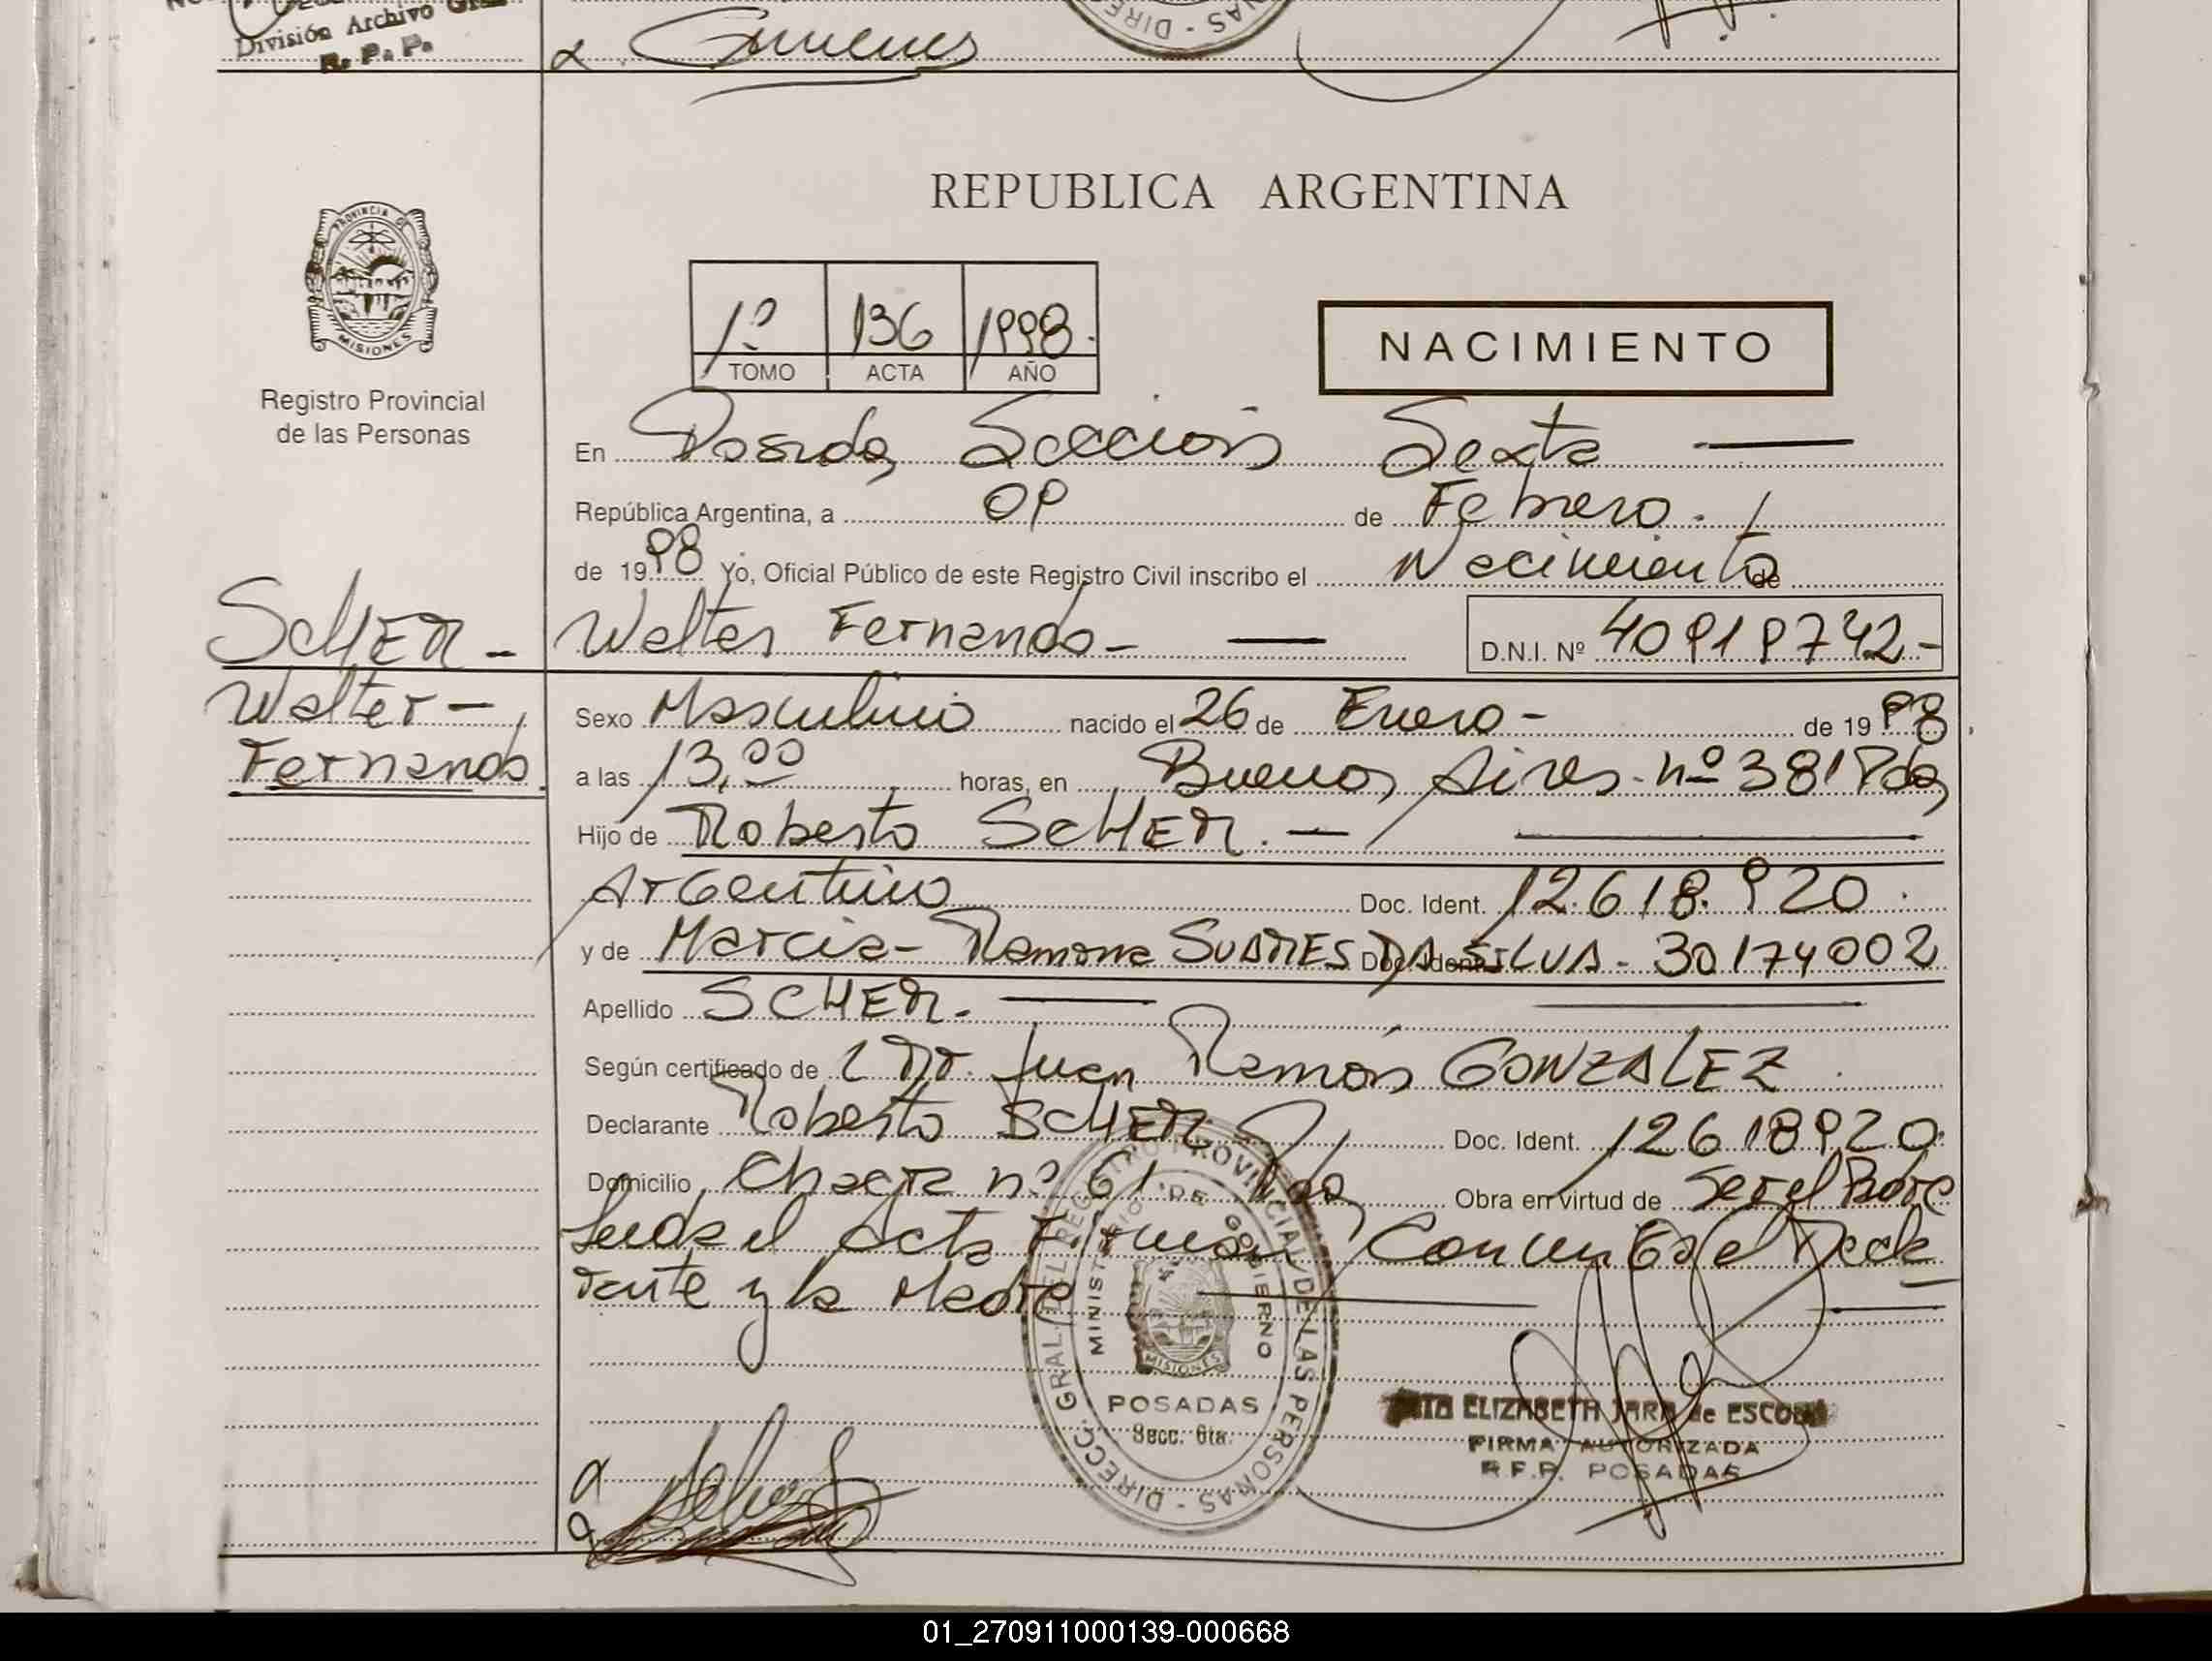 División Archivo Gral.
R. P. P.
Gimenes
REPUBLICA ARGENTINA
PROVINCIA DE
MISIONES
1º 136 1998.
TOMO ACTA AÑO
NACIMIENTO
Registro Provincial
de las Personas
En Posadas, Sección Sexta
República Argentina, a 09 de Febrero.
de 1998 Yo, Oficial Público de este Registro Civil inscribo el Nacimiento de
SCHER - Walter Fernando - D.N.I. Nº 40919742.-
Walter -
Fernando.
Sexo Masculino nacido el 26 de Enero - de 1998
a las 13,00 horas, en Buenos Aires. nº 381 Pdas,
Hijo de Roberto SCHER. -
Argentino Doc. Ident. 12.618.920.
y de Marcia - Ramona SUARES DA SILVA - Doc. Ident. 30174002
Apellido SCHER. -
Según certificado de Dr. Juan Ramón GONZALEZ
Declarante Roberto SCHER Doc. Ident. 12618920.
Domicilio Chacra nº 61 Pdas, Obra en virtud de Ser el Padre
Leida el Acta Firman Conmigo el Decla
rante y la Madre
DIRECC. GRAL. DEL REGISTRO PROVINCIAL DE LAS PERSONAS
MINISTERIO DE GOBIERNO
MISIONES
POSADAS
Secc. 6ta.
ELIZABETH JARA de ESCOBAR
FIRMA AUTORIZADA
R.P.P. POSADAS
01_270911000139-000668